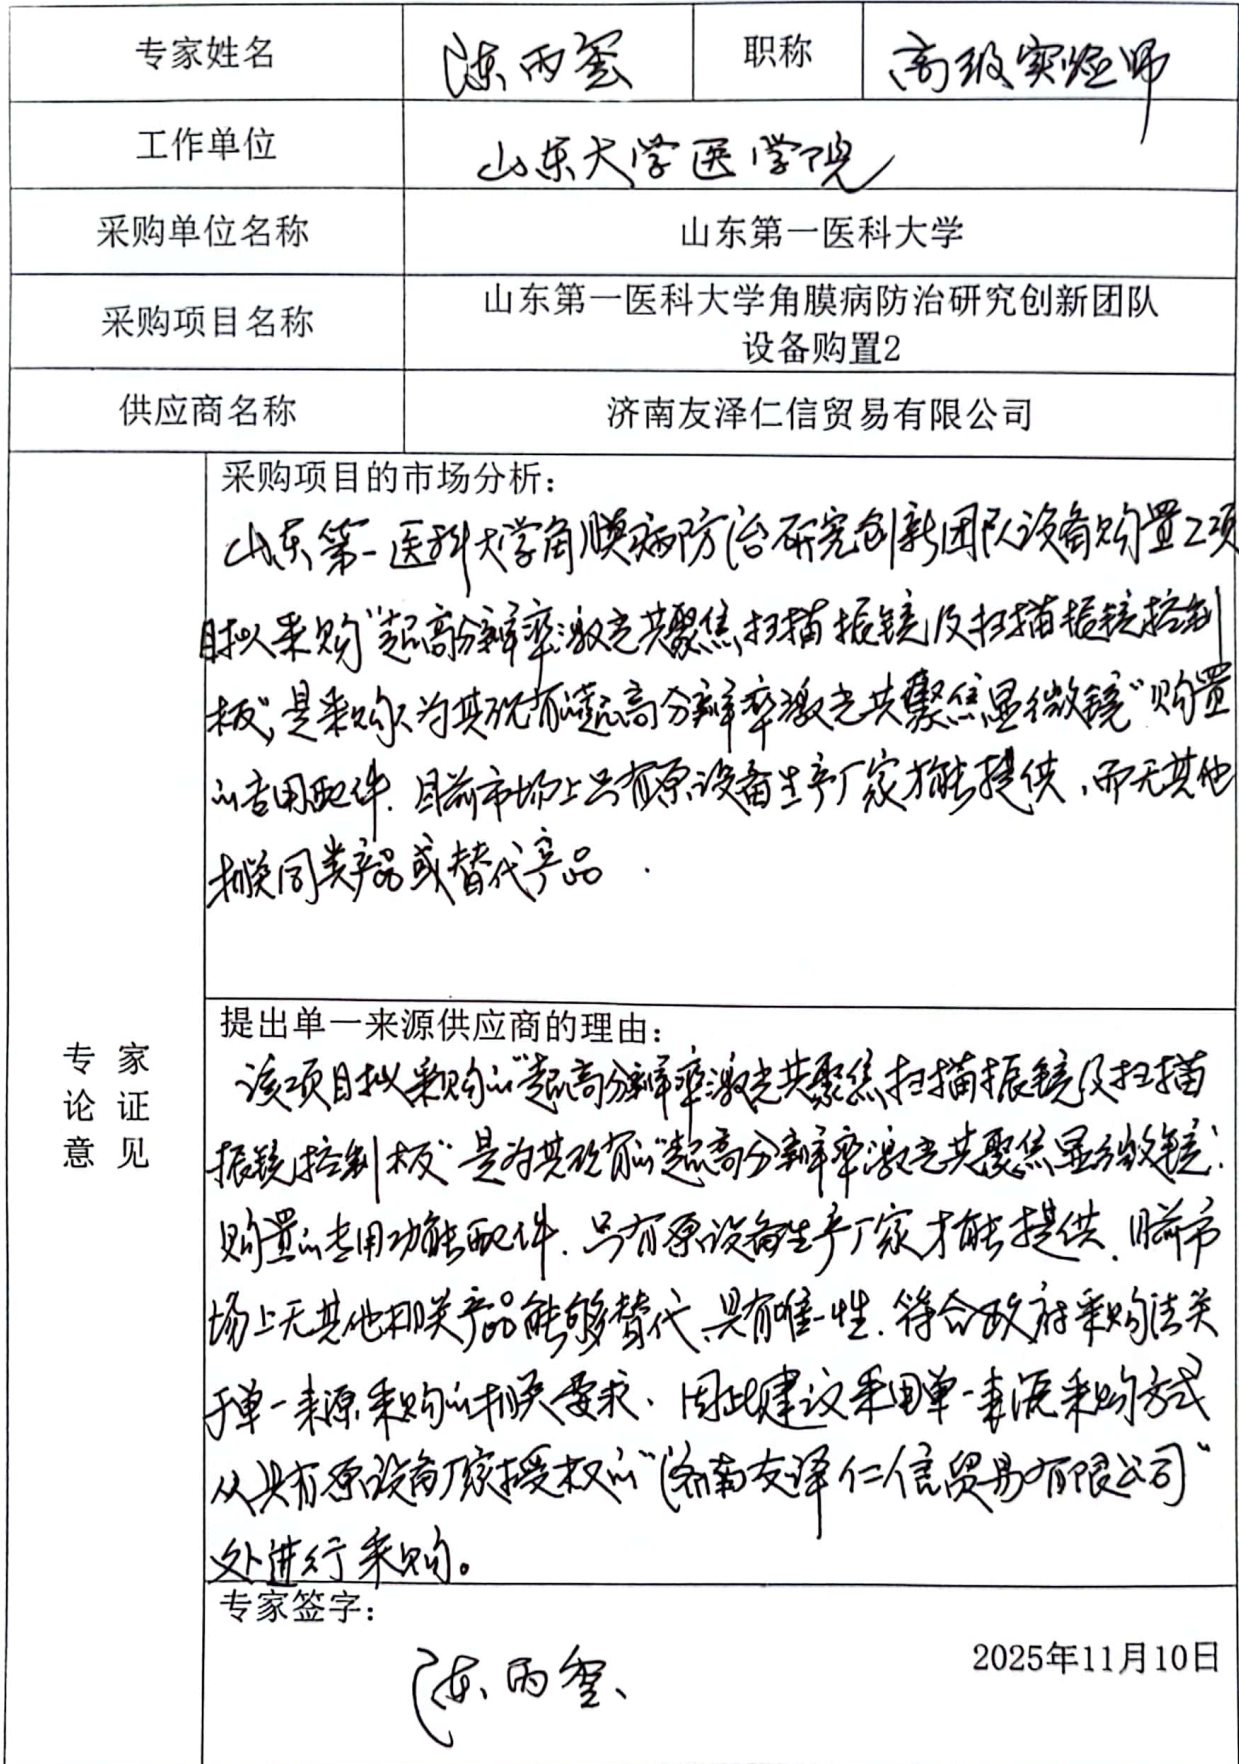 专家姓名 陈丙玺 职称 高级实验师
工作单位 山东大学医学院
采购单位名称 山东第一医科大学
采购项目名称 山东第一医科大学角膜病防治研究创新团队
设备购置2
供应商名称 济南友泽仁信贸易有限公司
专家
论证
意见
采购项目的市场分析：
山东第一医科大学角膜病防治研究创新团队设备购置2项
目拟采购“超高分辨率激光共聚焦扫描振镜及扫描振镜控制
板”，是采购人为其现有的“超高分辨率激光共聚焦显微镜”购置
的专用配件．目前市场上只有原设备生产厂家才能提供，而无其他
相关同类产品或替代产品．
提出单一来源供应商的理由：
该项目拟采购的“超高分辨率激光共聚焦扫描振镜及扫描
振镜控制板”是为其现有的“超高分辨率激光共聚焦显微镜”
购置的专用功能配件．只有原设备生产厂家才能提供．目前市
场上无其他相关产品能够替代，具有唯一性．符合政府采购法关
于单一来源采购的相关要求．因此建议采用单一来源采购方式
从具有原设备厂家授权的“济南友泽仁信贸易有限公司”
处进行采购。
专家签字：
陈丙玺
2025年11月10日